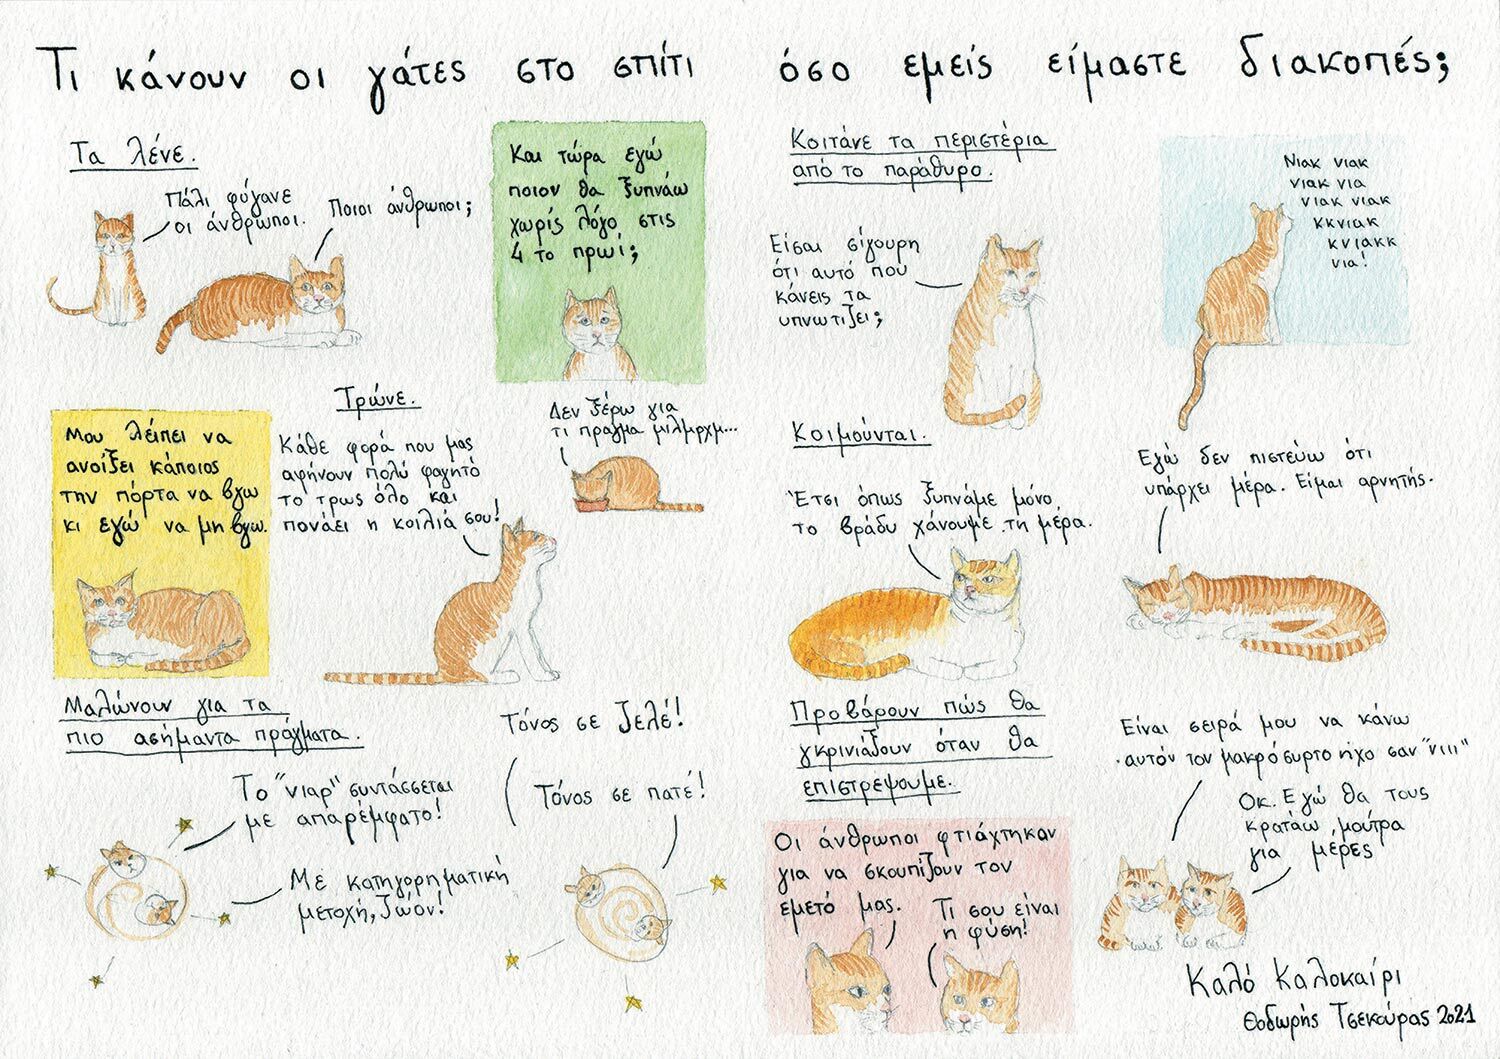 Τι κάνουν οι γάτες στο σπίτι όσο εμείς είμαστε διακοπές;
Τα λένε.
Πάλι φύγανε
οι άνθρωποι.
Ποιοι άνθρωποι;
Και τώρα εγώ
ποιον θα ξυπνάω
χωρίς λόγο στις
4 το πρωί;
Μου λείπει να
ανοίξει κάποιος
την πόρτα να βγω
κι εγώ να μη βγω.
Τρώνε.
Κάθε φορά που μας
αφήνουν πολύ φαγητό
το τρως όλο και
πονάει η κοιλιά σου!
Δεν ξέρω για
τι πράγμα μιλμρχμ...
Μαλώνουν για τα
πιο ασήμαντα πράγματα.
Το "νιαρ" συντάσσεται
με απαρέμφατο!
Με κατηγορηματική
μετοχή, ζώον!
Τόνος σε ζελέ!
Τόνος σε πατέ!
Κοιτάνε τα περιστέρια
από το παράθυρο.
Είσαι σίγουρη
ότι αυτό που
κάνεις τα
υπνωτίζει;
Νιακ νιακ
νιακ νια
νιακ νιακ
κκνιακ
κνιακκ
νια!
Κοιμούνται.
Έτσι όπως ξυπνάμε μόνο
το βράδυ χάνουμε τη μέρα.
Εγώ δεν πιστεύω ότι
υπάρχει μέρα. Είμαι αρνητής.
Προβάρουν πώς θα
γκρινιάζουν όταν θα
επιστρέψουμε.
Οι άνθρωποι φτιάχτηκαν
για να σκουπίζουν τον
εμετό μας.
Τι σου είναι
η φύση!
Είναι σειρά μου να κάνω
αυτόν τον μακρόσυρτο ήχο σαν "νιιι"
Οκ. Εγώ θα τους
κρατάω μούτρα
για μέρες
Καλό Καλοκαίρι
Θοδωρής Τσεκούρας 2021